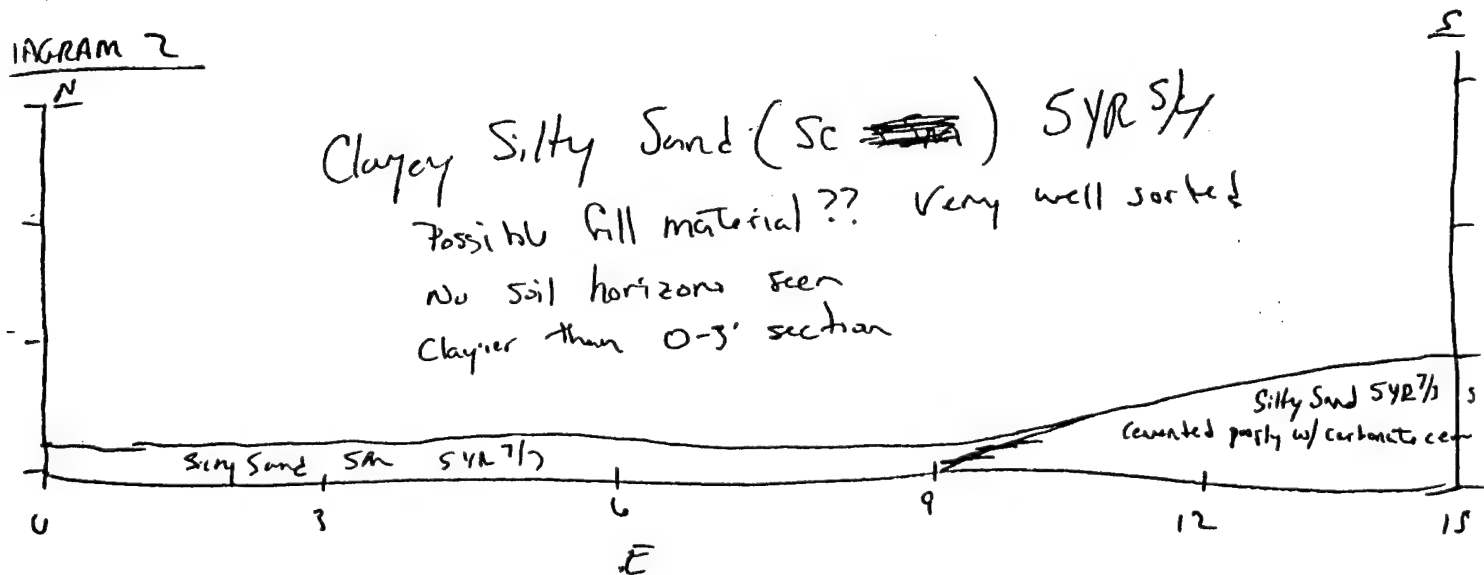 IAGRAM 2
N
S
Clayey Silty Sand (SC ) 5YR 5/4
Possible fill material?? Very well sorted
No soil horizons seen
Clayier than 0-3' section
Silty Sand 5YR 7/3 S
cemented poorly w/ carbonate cem
Silty Sand SM 5YR 7/3
0 3 6 9 12 15
E